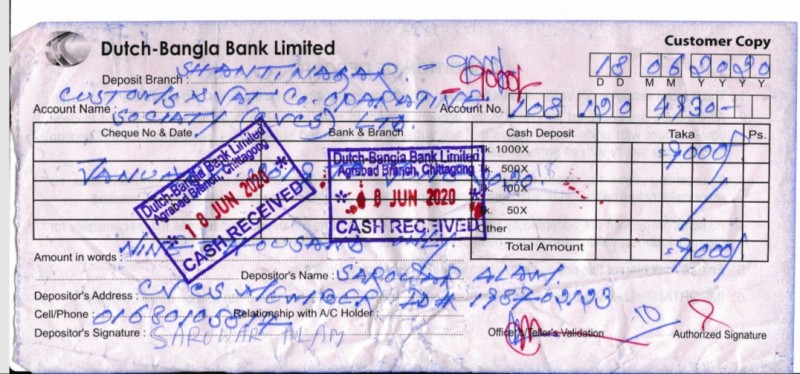 Dutch-Bangla Bank Limited
Customer Copy
Deposit Branch : SHANTINAGAR.
18 06 2020
D D M M Y Y Y Y
Account Name : CUSTOMS & VAT CO-OPARATIVE SOCIATY (CVCS) LTD.
Account No. 108 120 4830
Cheque No & Date Bank & Branch Cash Deposit Taka Ps.
Tk. 1000X 9000/
Tk. 500X
Tk. 100X
Tk. 50X
Other
Total Amount 9000/
Dutch-Bangla Bank Limited
Agrabad Branch, Chittagong
18 JUN 2020
CASH RECEIVED
Dutch-Bangla Bank Limited
Agrabad Branch, Chittagong
8 JUN 2020
CASH RECEIVED
Amount in words : NINE THOUSAND ONLY.
Depositor's Name : SAROWAR ALAM.
Depositor's Address : CVCS MEMBER ID# 1987-02123
Cell/Phone : Relationship with A/C Holder :
Depositor's Signature : SAROWAR ALAM
Officer's/Teller's Validation Authorized Signature